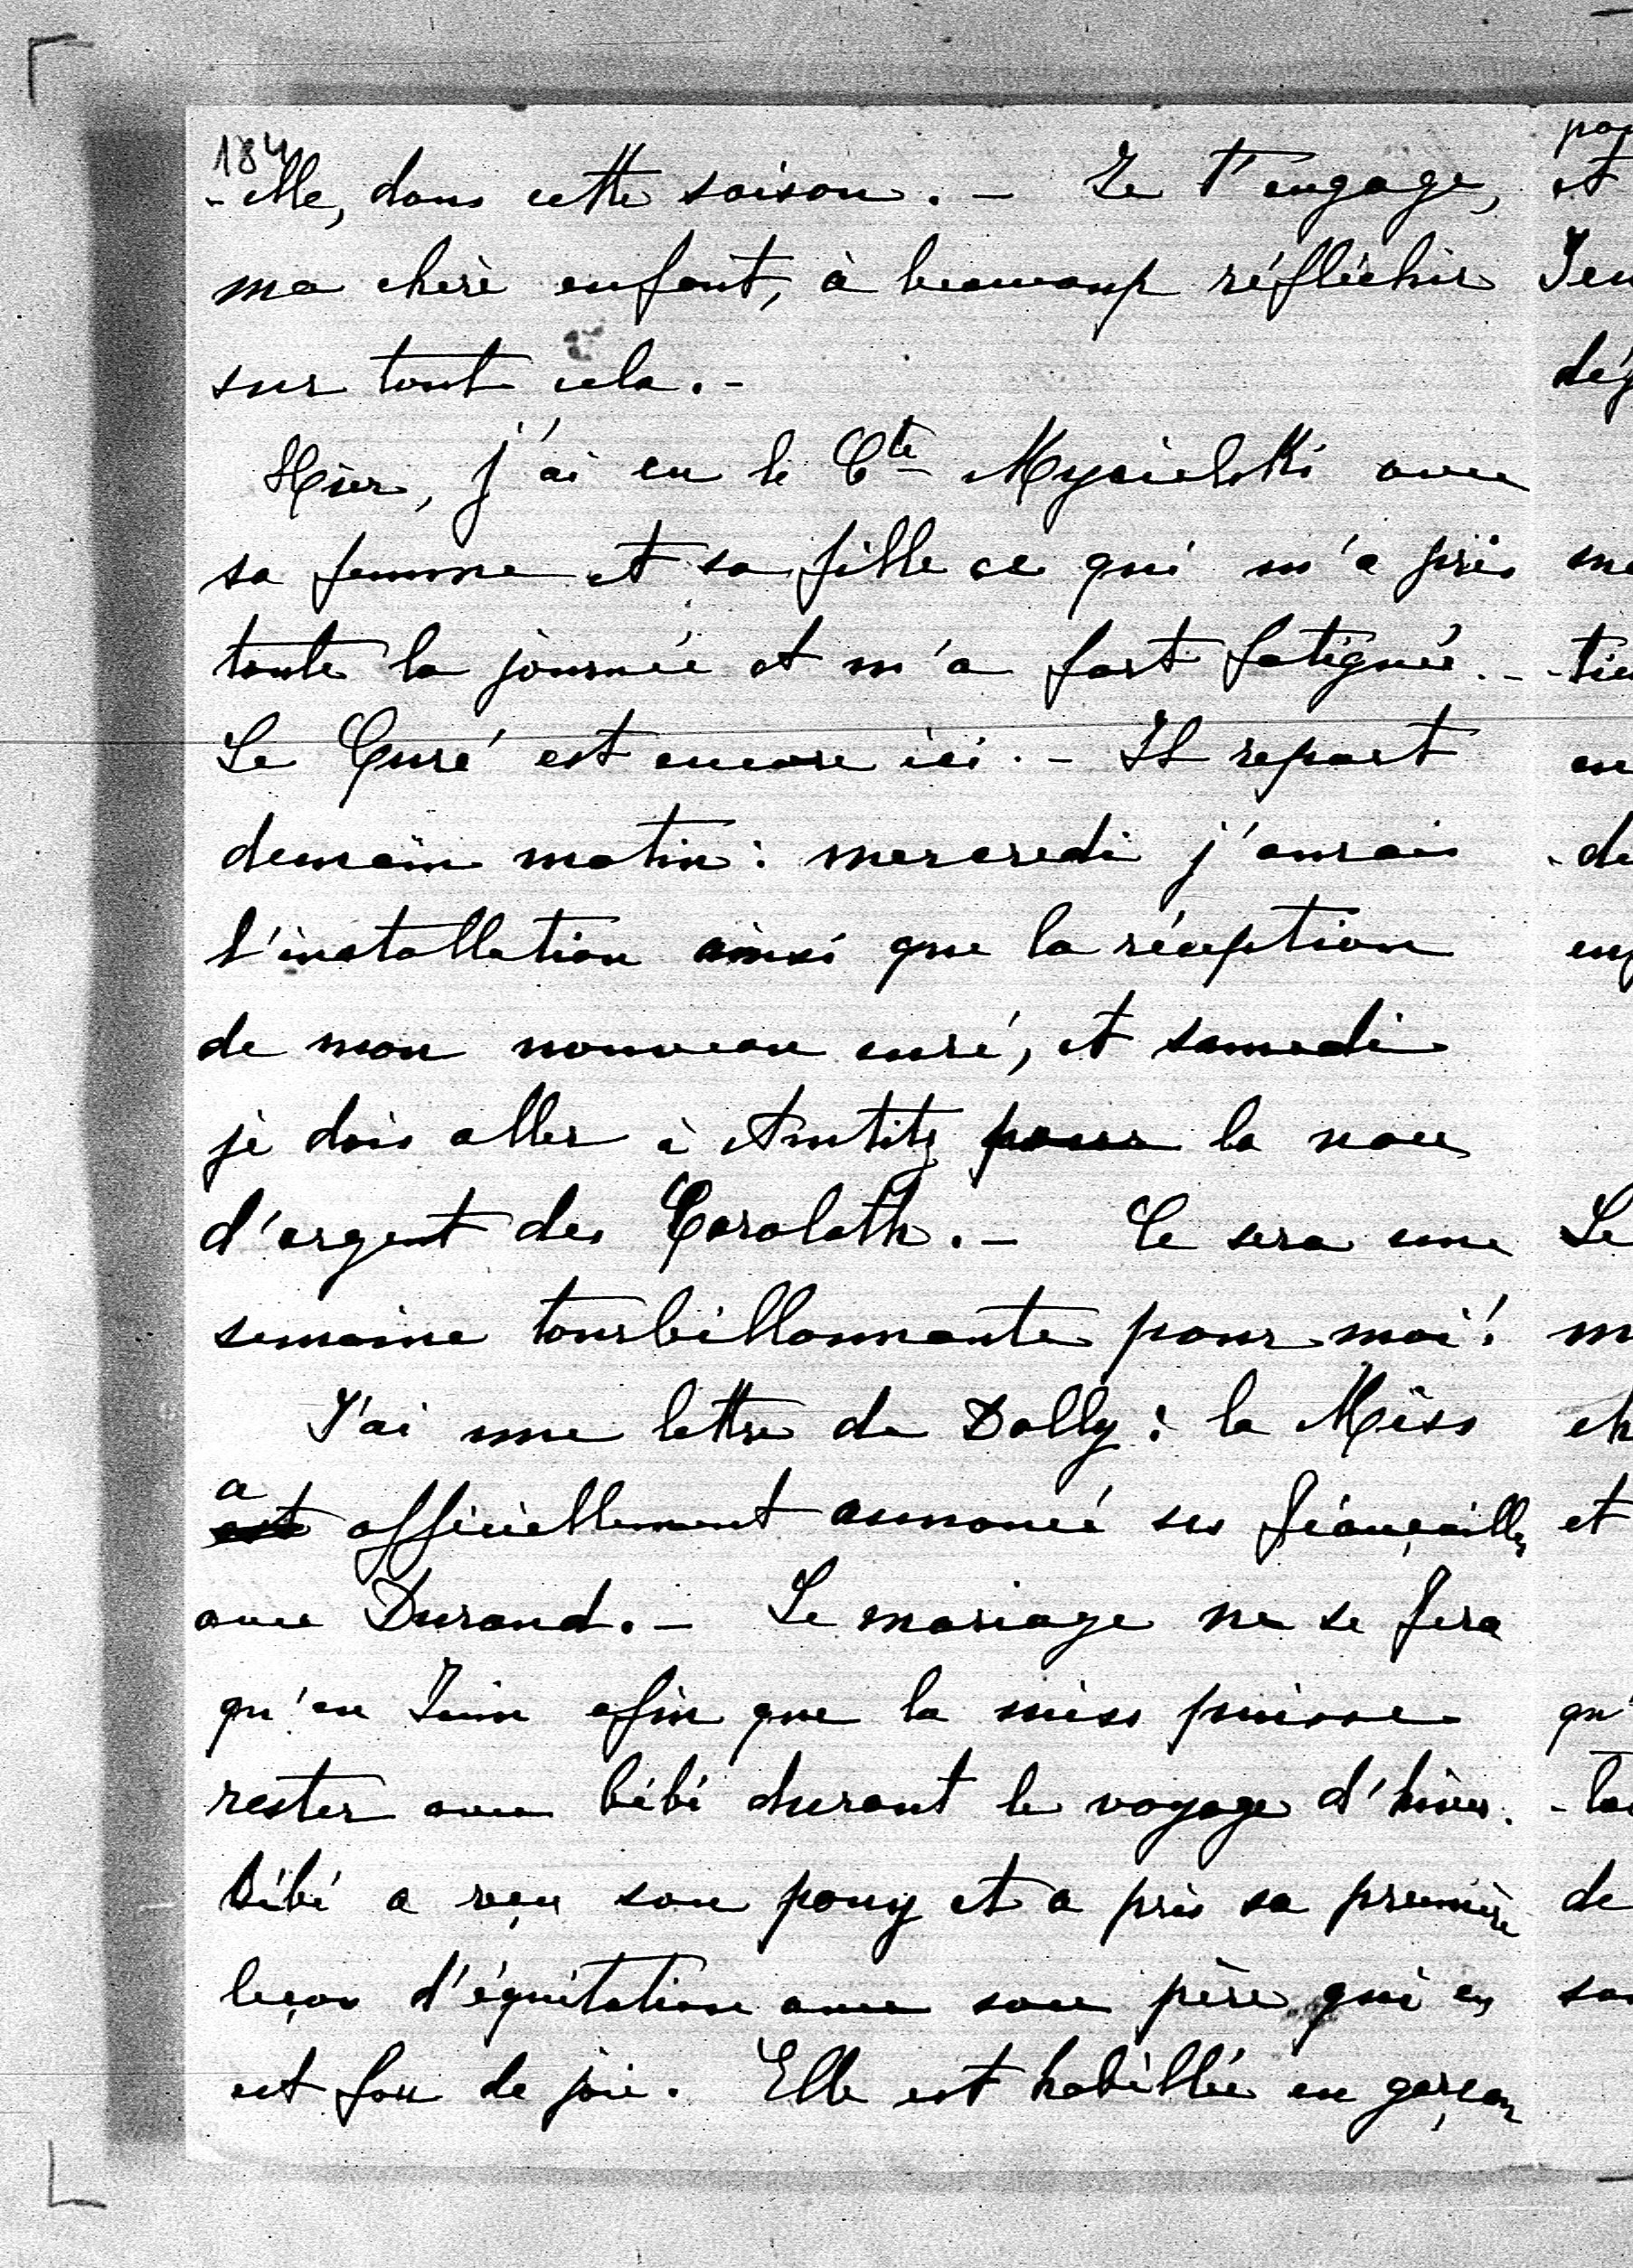 184
-elle, dans cette saison. – Je t'engage,
ma chère enfant, à beaucoup réfléchir
sur tout cela. –
Hier, j'ai eu le Cte Mycielski avec
sa femme et sa fille ce qui m'a pris
toute la journée et m'a fort fatiguée. –
Le Curé est encore ici. – Il repart
demain matin : mercredi j'aurais
l'installation ainsi que la réception
de mon nouveau curé, et samedi
je dois aller à Amtitz pour la noce
d'argent des Carolath. – Ce sera une
semaine tourbillonnante pour moi !
J'ai une lettre de Dolly : la Miss
a
est officiellement annoncé ses fiançailles
avec Durand. – Le mariage ne se fera
qu'en Juin afin que la miss puisse
rester avec bébé durant le voyage d'hiver.
Bébé a reçu son pony et a pris sa première
leçon d'équitation avec son père qui en
est fou de joie. Elle est habillée en garçon